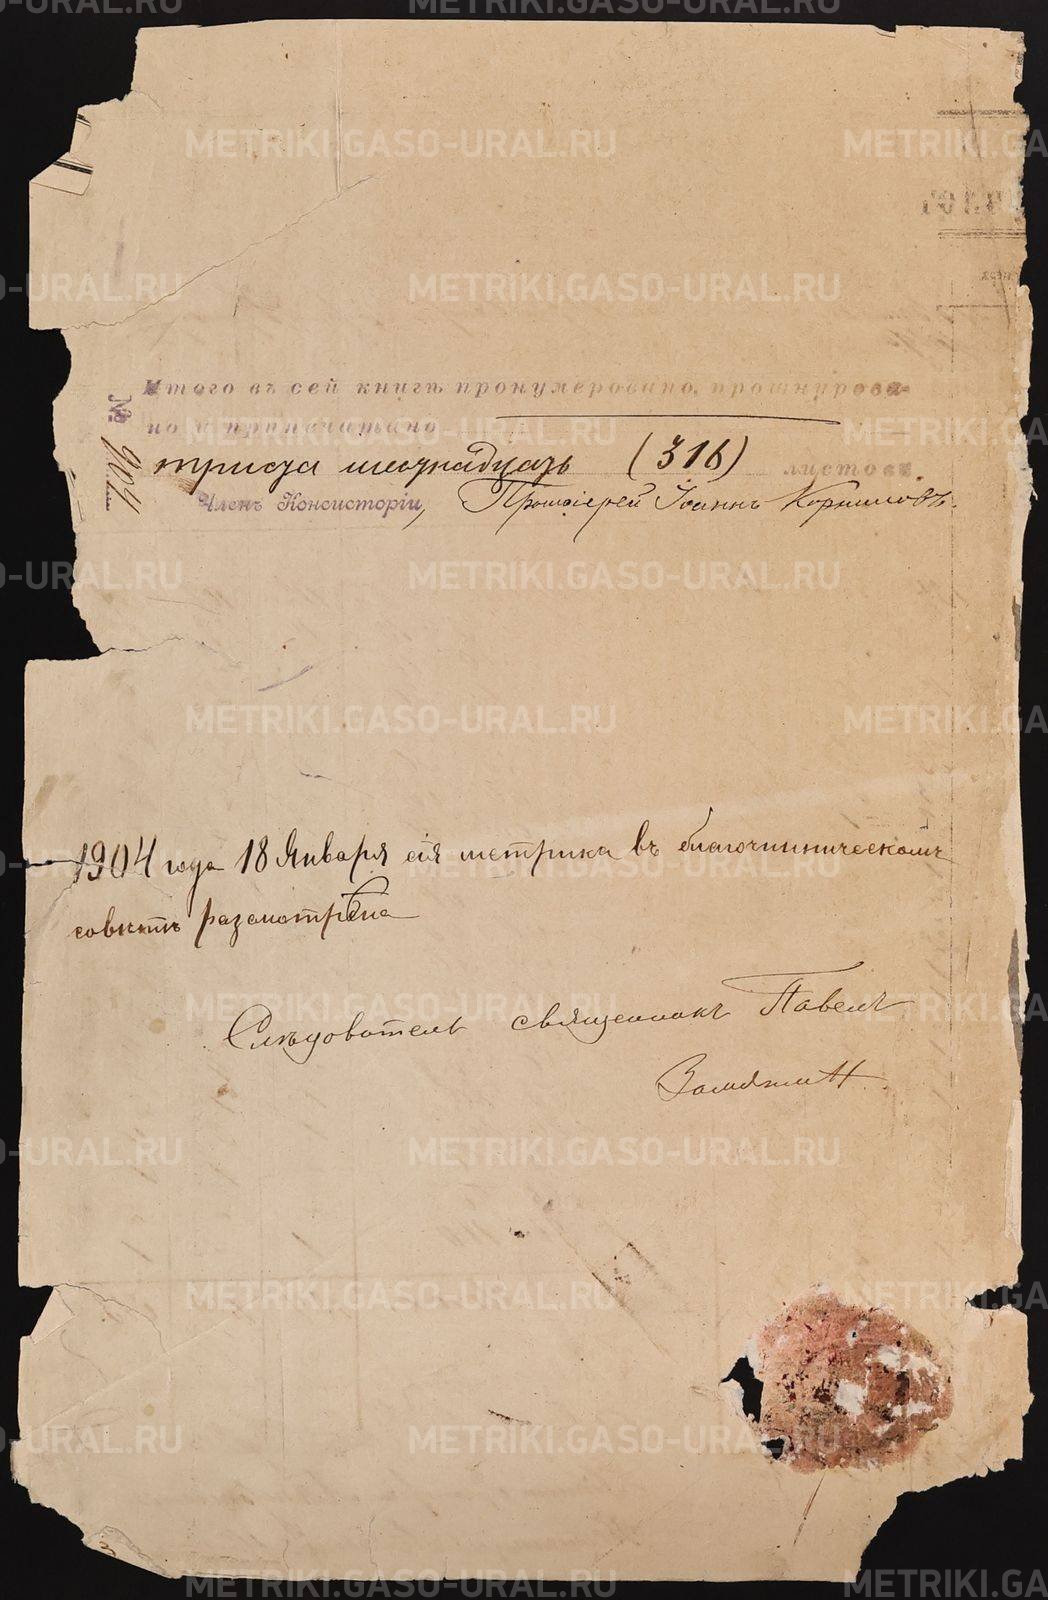 Итого въ сей книгѣ пронумеровано, прошнурова-
но и припечатано
триста шестнадцать (316) листовъ.
Членъ Консисторіи, Протоіерей Іоаннъ Корниловъ.
№ 904
1904 года 18 Января сія метрика въ благочинническомъ
совѣтѣ разсмотрѣна
Слѣдователь священникъ Павелъ
METRIKI.GASO-URAL.RU